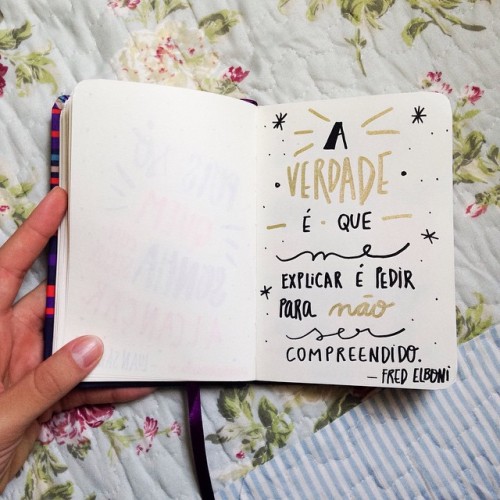 A
VERDADE
É QUE
me
EXPLICAR É PEDIR
PARA não
ser
COMPREENDIDO.
— FRED ELBONI